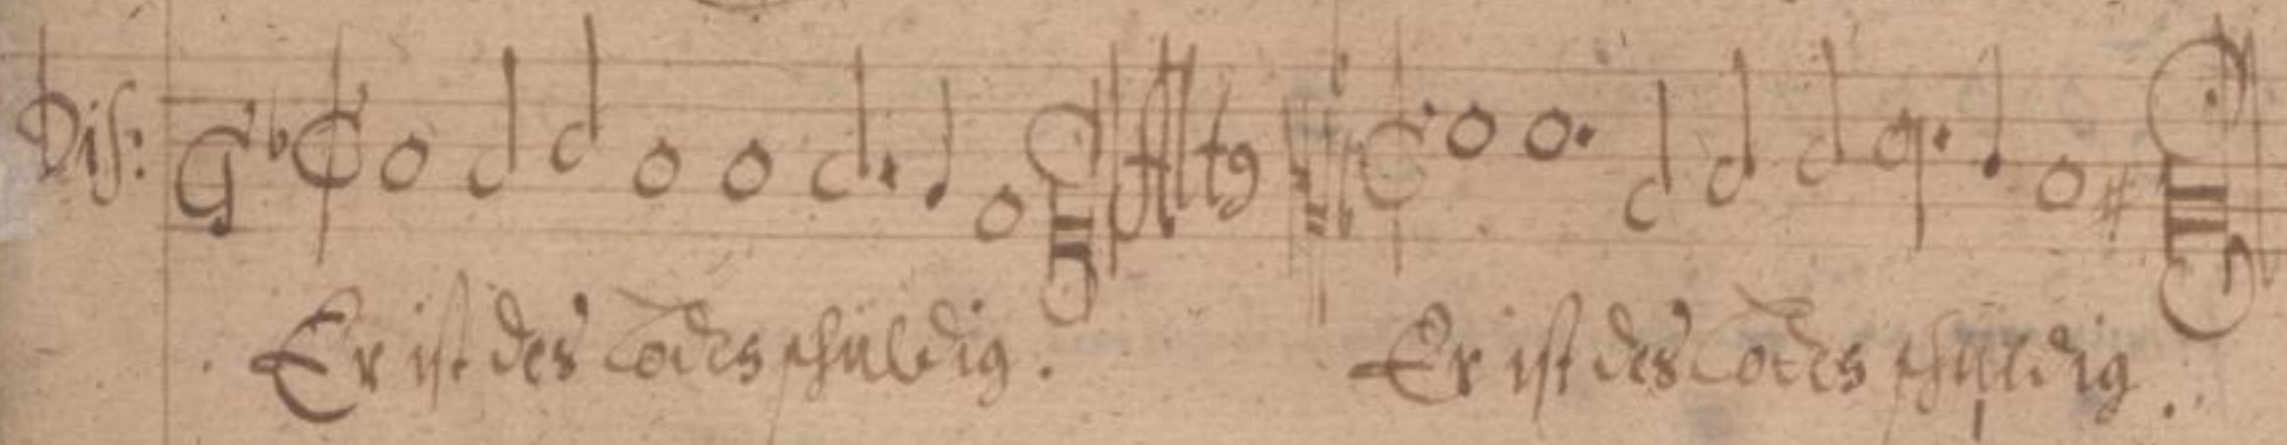 Dis: Altꝰ
Er ist des Todes schuldig. Er ist des Todes schuldig.